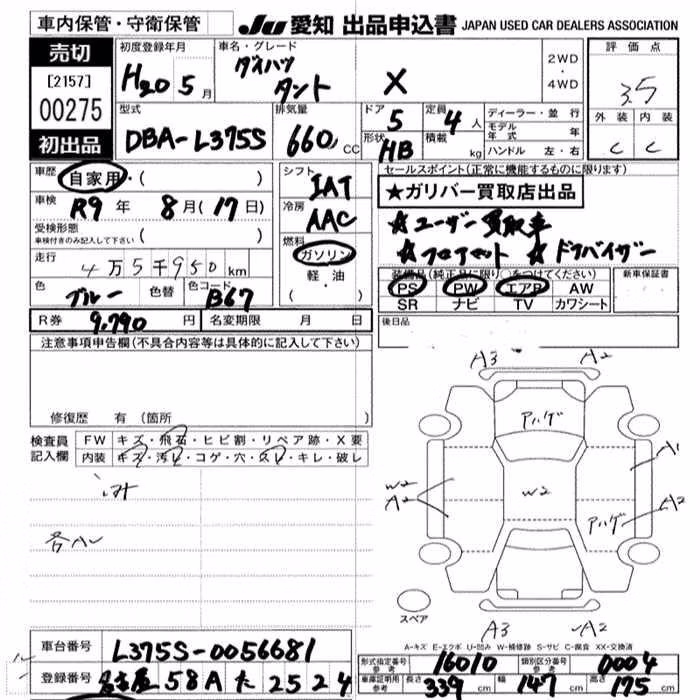 車内保管・守衛保管
JU 愛知 出品申込書 JAPAN USED CAR DEALERS ASSOCIATION
売切
[2157]
00275
初出品
初度登録年月
H20 5月
車名・グレード
ダイハツ
タント X
2WD
・
4WD
評価点
3.5
外装 内装
C C
型式
DBA-L375S
排気量
660 CC
ドア
5
形状
HB
定員
4人
積載
kg
ディーラー・並行
モデル年式 年
ハンドル 左・右
車歴
自家用・( )
車検
R9年 8月(17日)
受検形態
車検付きのみ記入して下さい ( )
走行
4万5千950km
色
ブルー
色替
色コード
B67
シフト
IAT
冷房
AAC
燃料
ガソリン
軽・油
( ・ )
セールスポイント(正常に機能するものに限ります)
★ガリバー買取店出品
☆ユーザー買取車
☆フロアマット ☆ドアバイザー
装備品(純正品に限り○をつけてください)
PS PW エアB AW
SR ナビ TV カワシート
新車保証書
後日品
R券 9,790円 名変期限 月 日
注意事項申告欄(不具合内容等は具体的に記入して下さい)
修復歴 有(箇所
検査員記入欄
FW キズ・飛石・ヒビ割・リペア跡・X要
内装 キズ・汚レ・コゲ・穴・スレ・キレ・破レ
A3 A2
アハゲ
A1
W2
A2
W2
アハゲ A2
各A
スペア
A3 A2
A-キズ E-エクボ U-凹み W-補修跡 S-サビ C-腐食 XX-交換済
車台番号 L375S-0056681
登録番号 名古屋 58A た 2524
形式指定番号 参考 16010
類別区分番号 参考 0004
車庫証明用 参考 長さ 339cm 幅 147cm 高さ 175cm